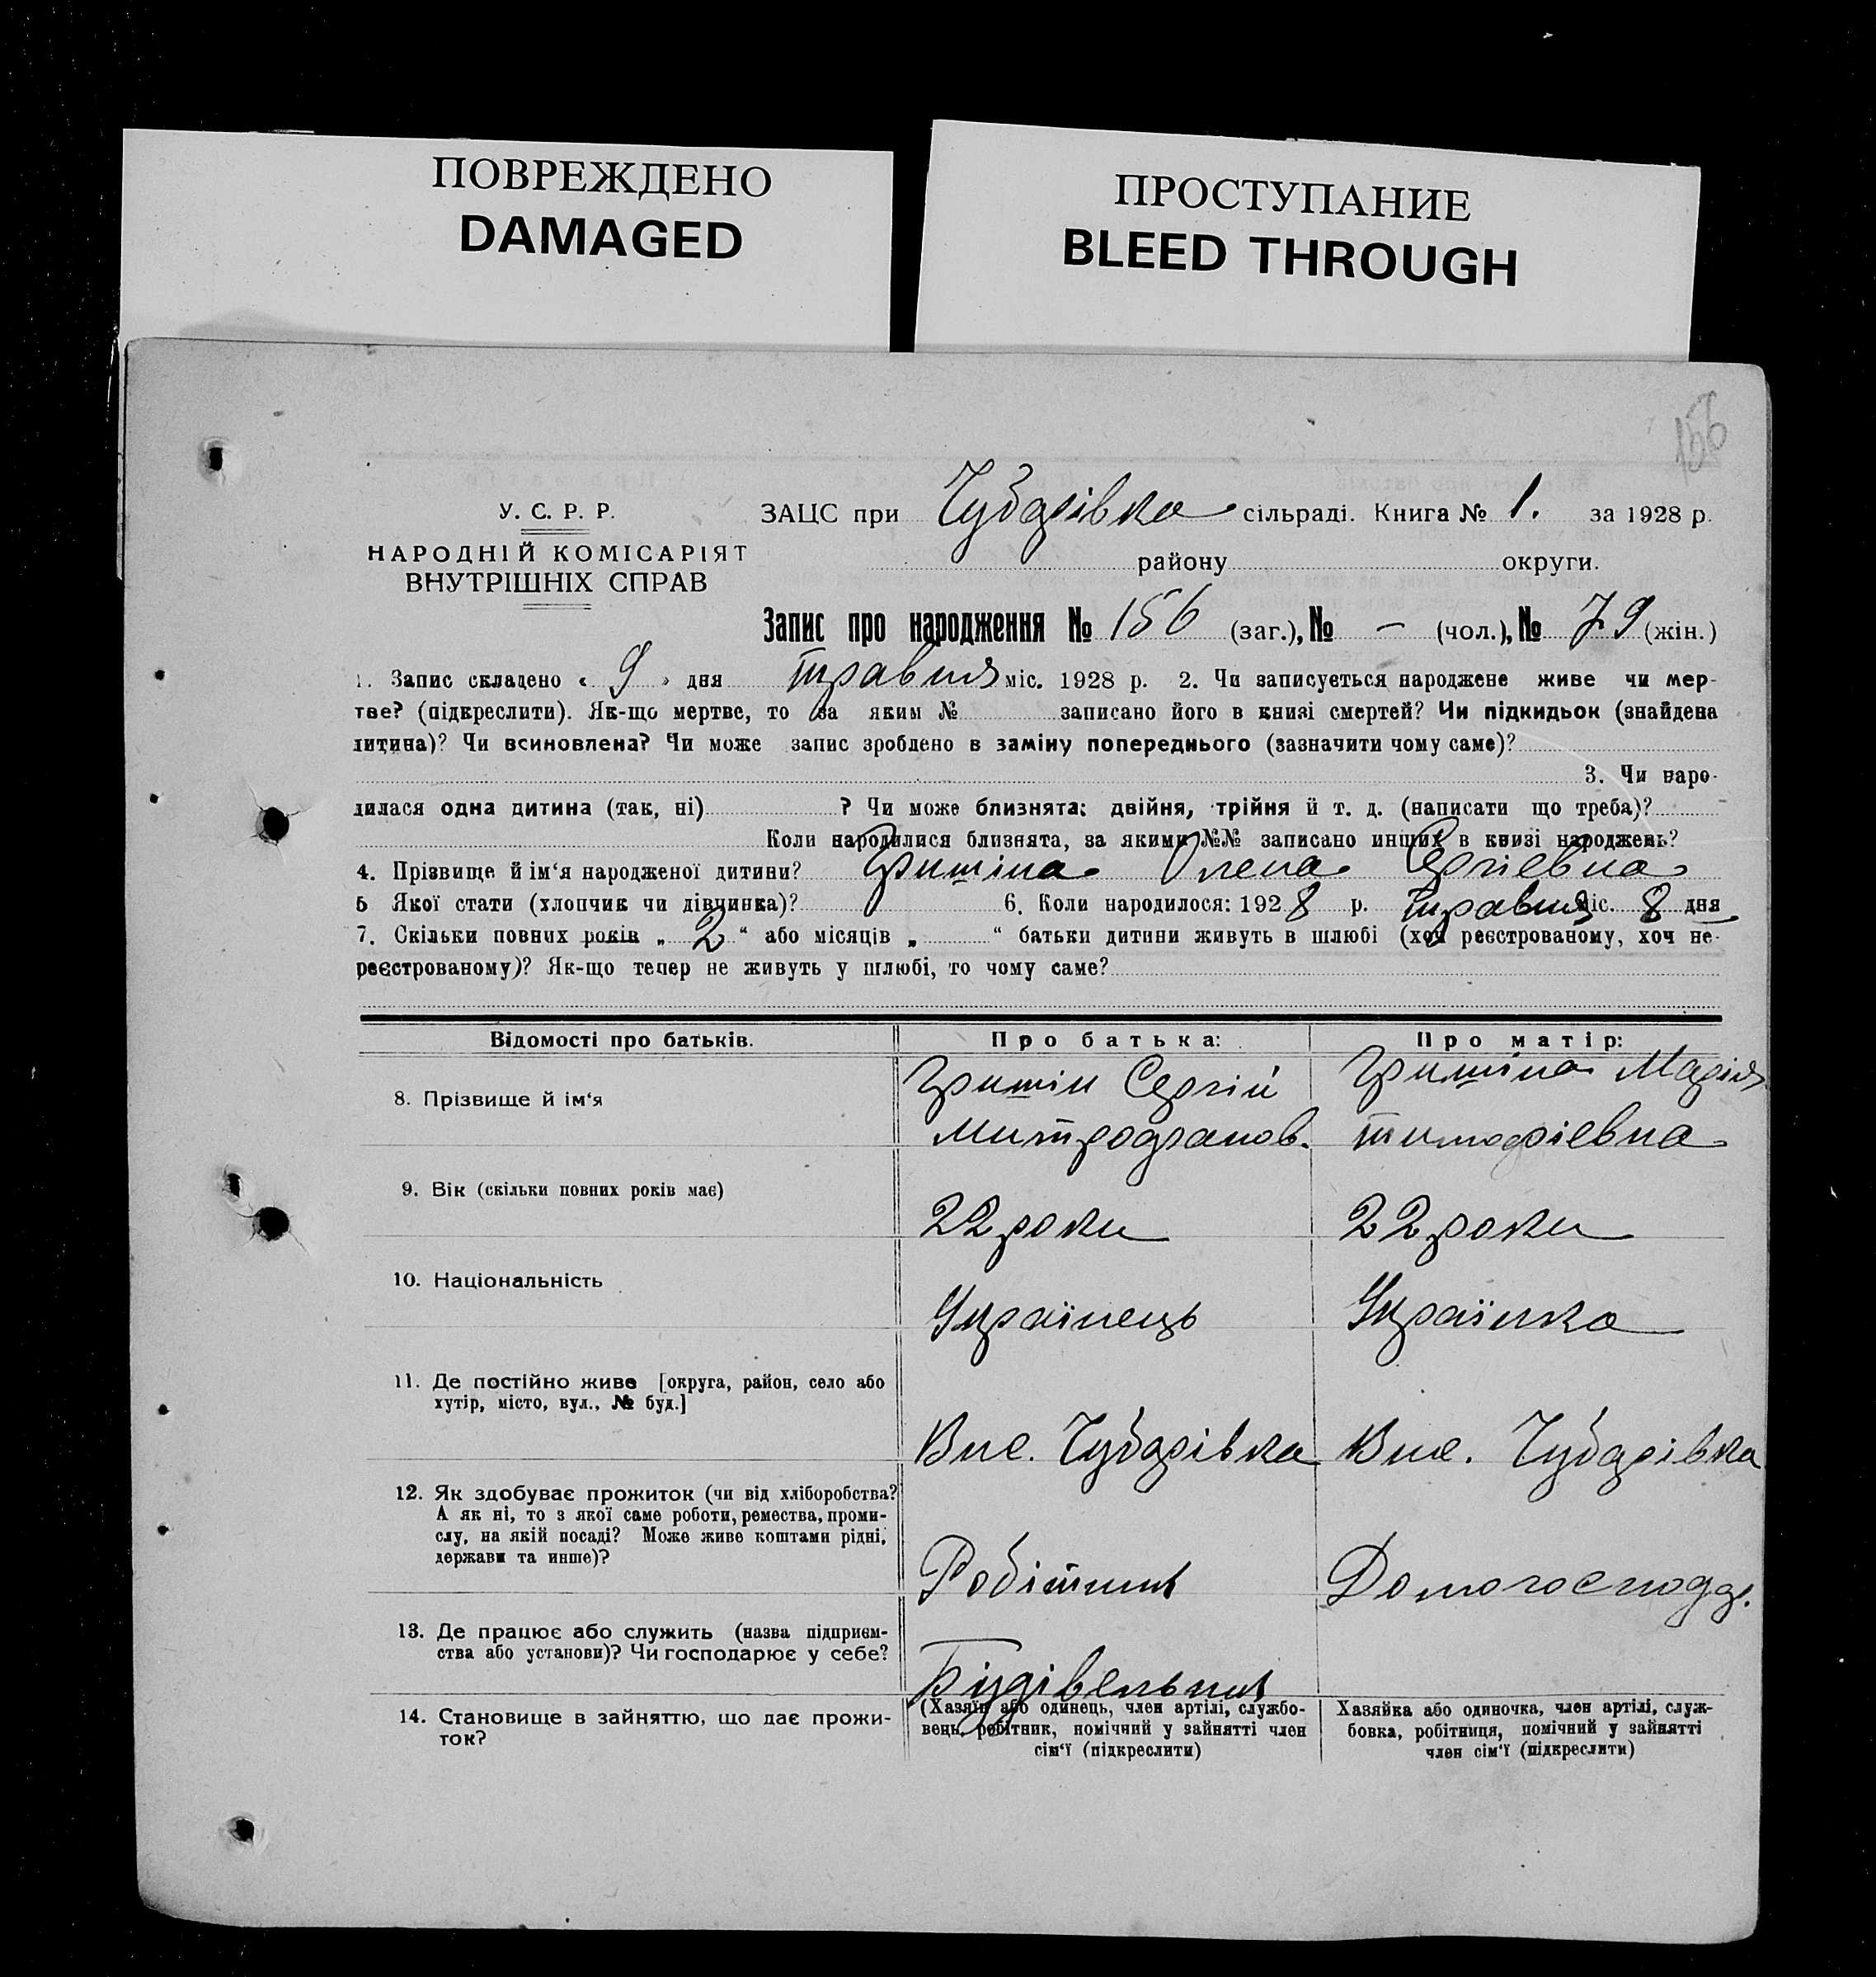 ПОВРЕЖДЕНО
DAMAGED
ПРОСТУПАНИЕ
BLEED THROUGH
156
У. С. Р. Р.
НАРОДНІЙ КОМІСАРІЯТ
ВНУТРІШНІХ СПРАВ
ЗАЦС при Чубарівка сільраді. Книга № 1. за 1928 р.
району округи.
Запис про народження № 156 (заг.), № — (чол.), № 79 (жін.)
1. Запис складено « 9 » дня травня міс. 1928 р. 2. Чи записується народжене живе чи мер-
тве? (підкреслити). Як-що мертве, то за яким № записано його в книзі смертей? Чи підкидьок (знайдена
дитина)? Чи всиновлена? Чи може запис зроблено в заміну попереднього (зазначити чому саме)?
3. Чи наро-
дилася одна дитина (так, ні) ? Чи може близнята: двійня, трійня й т. д. (написати що треба)?
Коли народилися близнята, за якими №№ записано инших в книзі народжень?
4. Прізвище й ім'я народженої дитини? Гришіна Олена Сергіевна
5 Якої стати (хлопчик чи дівчинка)? 6. Коли народилося: 1928 р. травня міс. 8 дня
7. Скільки повних років „ 2 “ або місяців „ “ батьки дитини живуть в шлюбі (хоч реєстрованому, хоч не-
реєстрованому)? Як-що тепер не живуть у шлюбі, то чому саме?
Відомості про батьків. Про батька: Про матір:
8. Прізвище й ім'я Гришін Сергій Гришіна Марія
Митрофанов. Тимофіевна
9. Вік (скільки повних років має) 22 роки 22 роки
10. Національність Українець Українка
11. Де постійно живе [округа, район, село або
хутір, місто, вул., № буд.]
Вис. Чубарівка Вис. Чубарівка
12. Як здобуває прожиток (чи від хліборобства?
А як ні, то з якої саме роботи, ремества, проми-
слу, на якій посаді? Може живе коштами рідні,
держави та инше)?
Робітник Домогосподр.
13. Де працює або служить (назва підприєм-
ства або установи)? Чи господарює у себе?
Будівельник
14. Становище в зайняттю, що дає прожи-
ток?
(Хазяїн або одинець, член артілі, службо-
вець, робітник, помічний у зайнятті член
сім'ї (підкреслити)
Хазяйка або одиночка, член артілі, служ-
бовка, робітниця, помічний у зайнятті
член сім'ї (підкреслити)